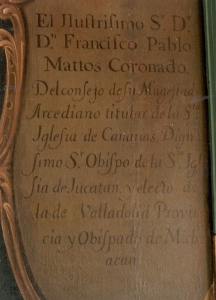 El Illustrisimo S.r D.r
D.n Francisco Pablo
Mattos Coronado,
Del consejo de su Magestad
Arcediano titular de la S.ta
Iglesia de Canarias, Dignis
simo S.r Obispo de la S.ta Igle
sia de Jucatan, y electo de
la de Valladolid Provin
cia y Obispado de Mich
acan